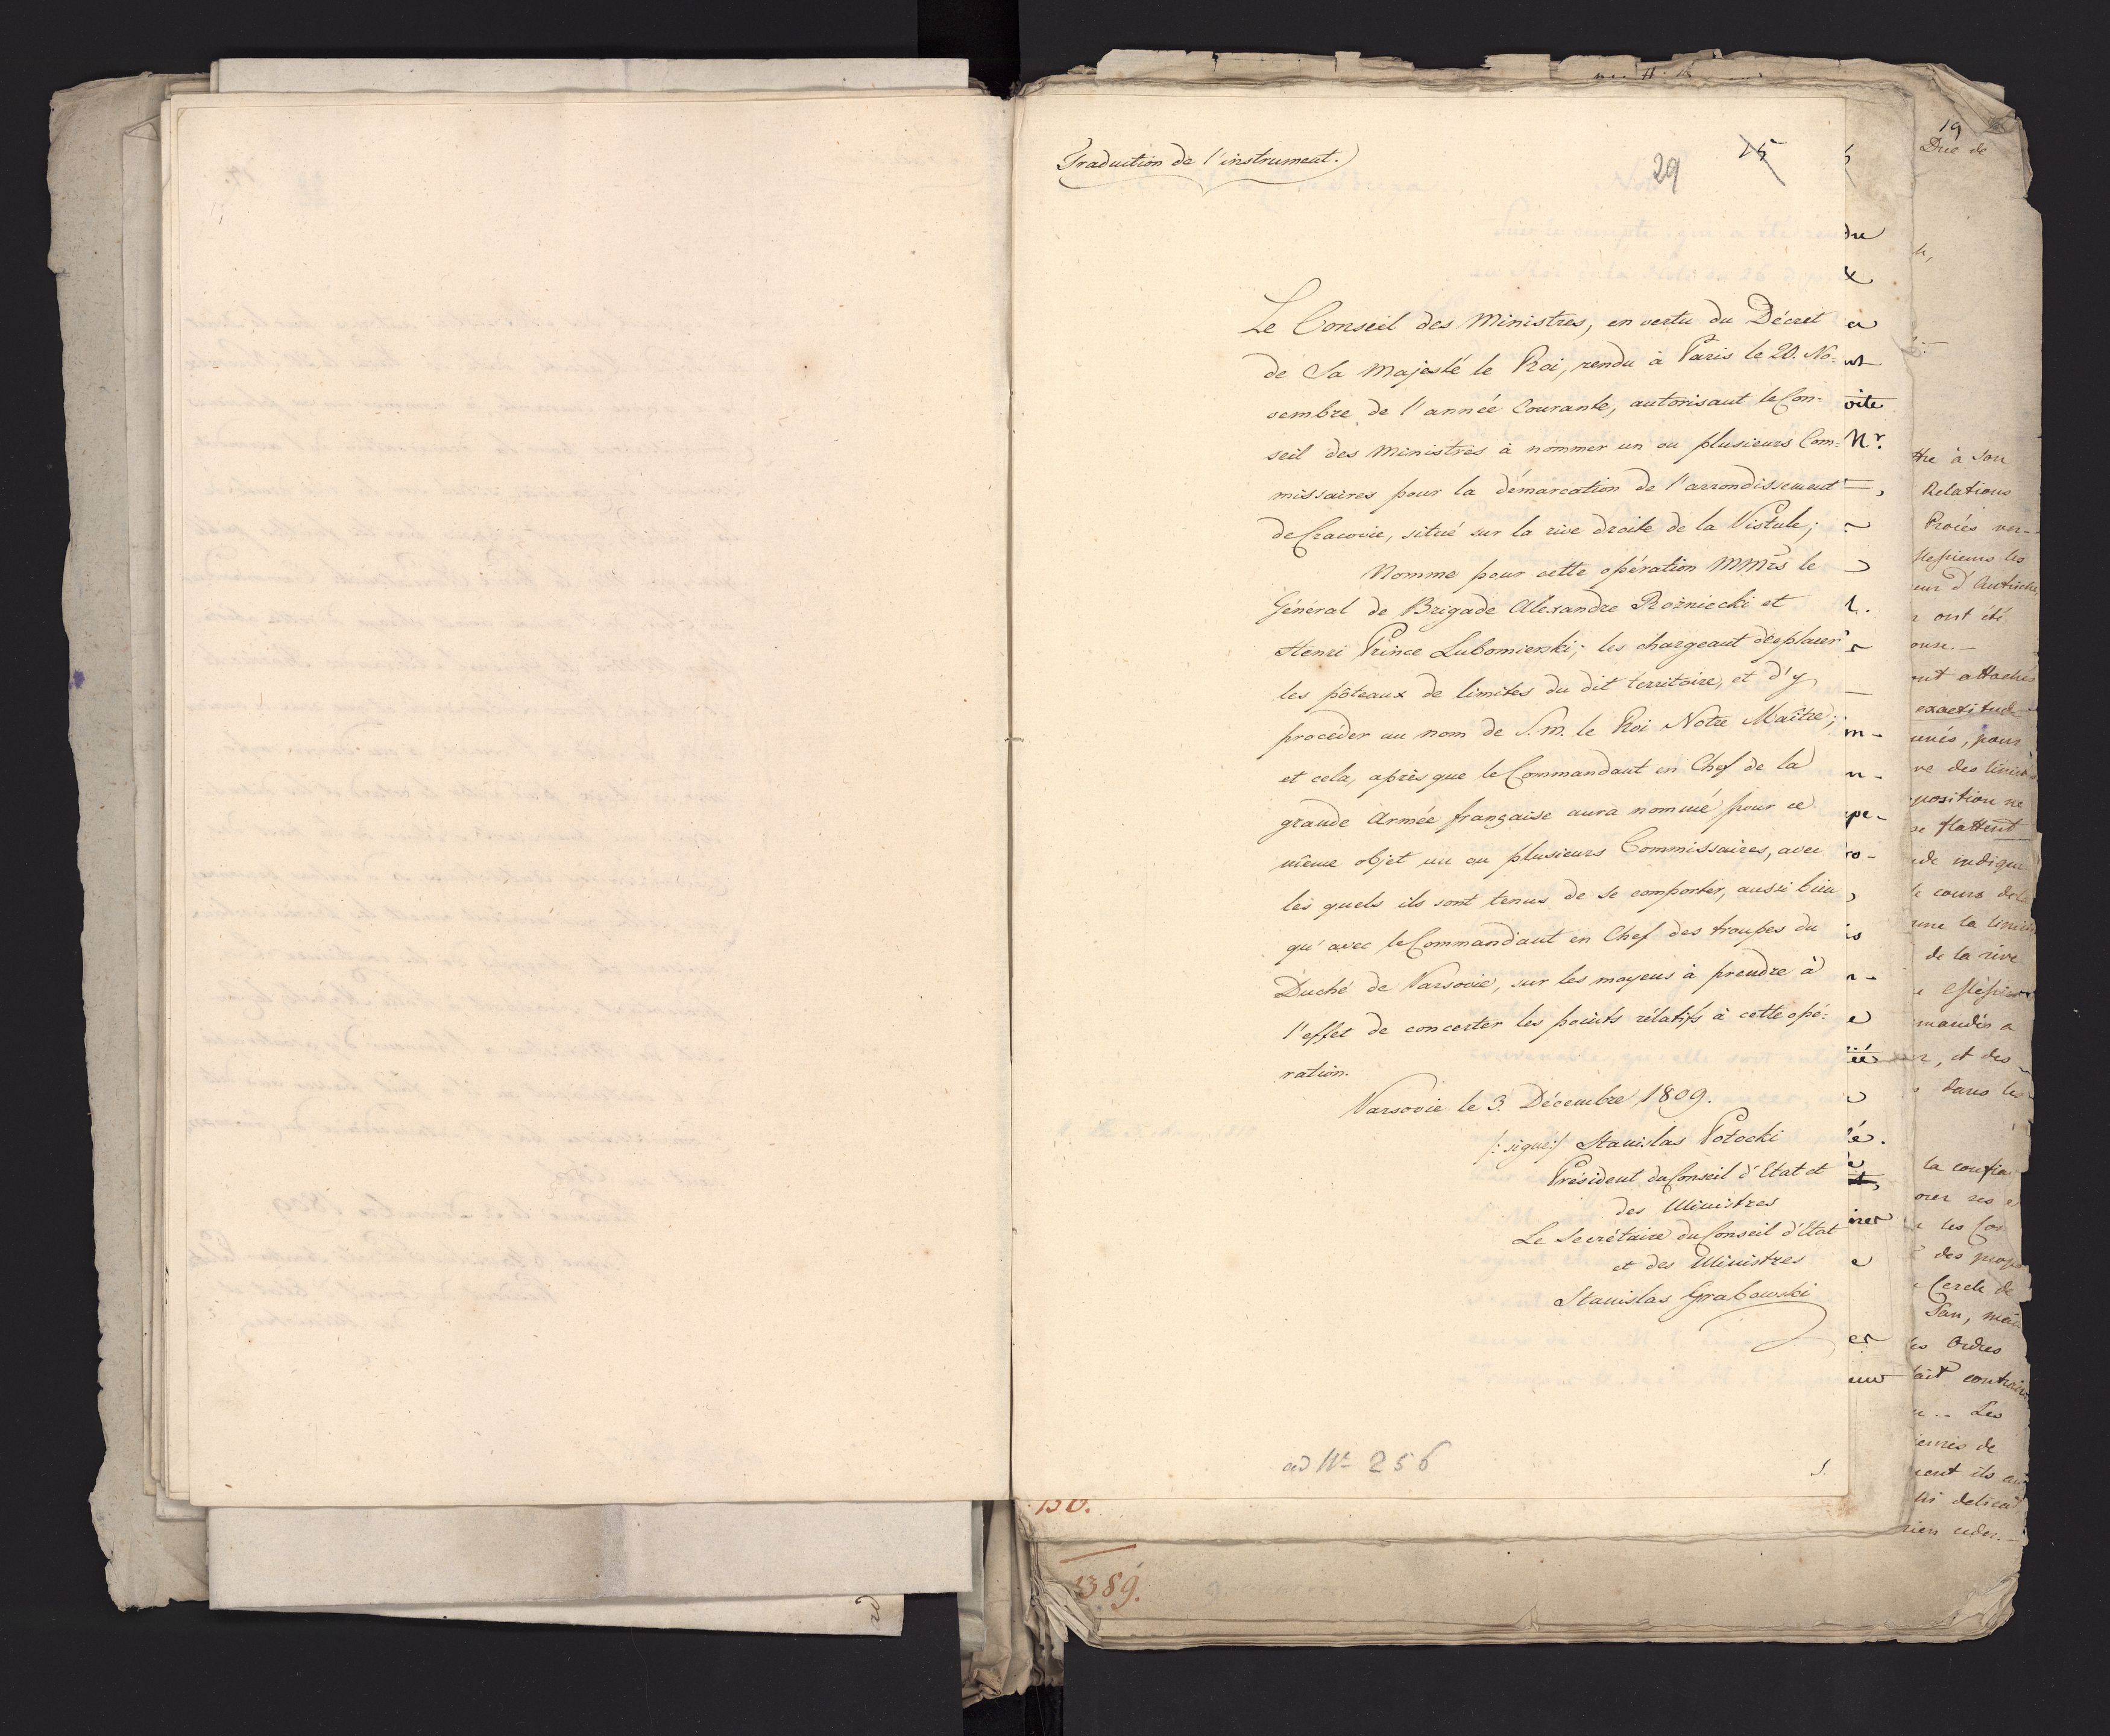 Traduction de l'instrument.
29
15
Le Conseil des Ministres, en vertu du Décret
de Sa Majesté le Roi, rendu à Paris le 20. No=
vembre de l'année Courante, autorisant le Con-
seil des Ministres à nommer un ou plusieurs Com=
missaires pour la démarcation de l'arrondissement
de Cracovie, situé sur la rive droite de la Vistule;
Nomme pour cette opération MMrs le
Général de Brigade Alexandre Rożniecki et
Henri Prince Lubomierski; les chargeant de placer
les pôteaux de limites du dit territoire, et d'y
procéder au nom de S. M. le Roi Notre Maître;
et cela, après que le Commandant en Chef de la
grande Armée française aura nommé pour ce
même objet un ou plusieurs Commissaires, avec
les quels ils sont tenus de se comporter, aussi bien
qu'avec le Commandant en Chef des troupes du
Duché de Varsovie, sur les moyens à prendre à
l'effet de concerter les points rélatifs à cette opé=
ration.
Varsovie le 3. Décembre 1809.
/: signé :/ Stanislas Potocki
Président du Conseil d'Etat et
des Ministres
Le Secrétaire du Conseil d'Etat
et des Ministres
Stanislas Grabowski
ad Nr 256
S.
130.
1389.
19
Due de
tre à son
Relations
Procès ver-
Messieurs les
eur d'Autriche,
ont été
ont attachés
exactitude
position ne
se flattent
de indique
le cours de la
de la rive
, et des
dans les
la confia
des prop
Cercle de
San, mai
Ordres
Les